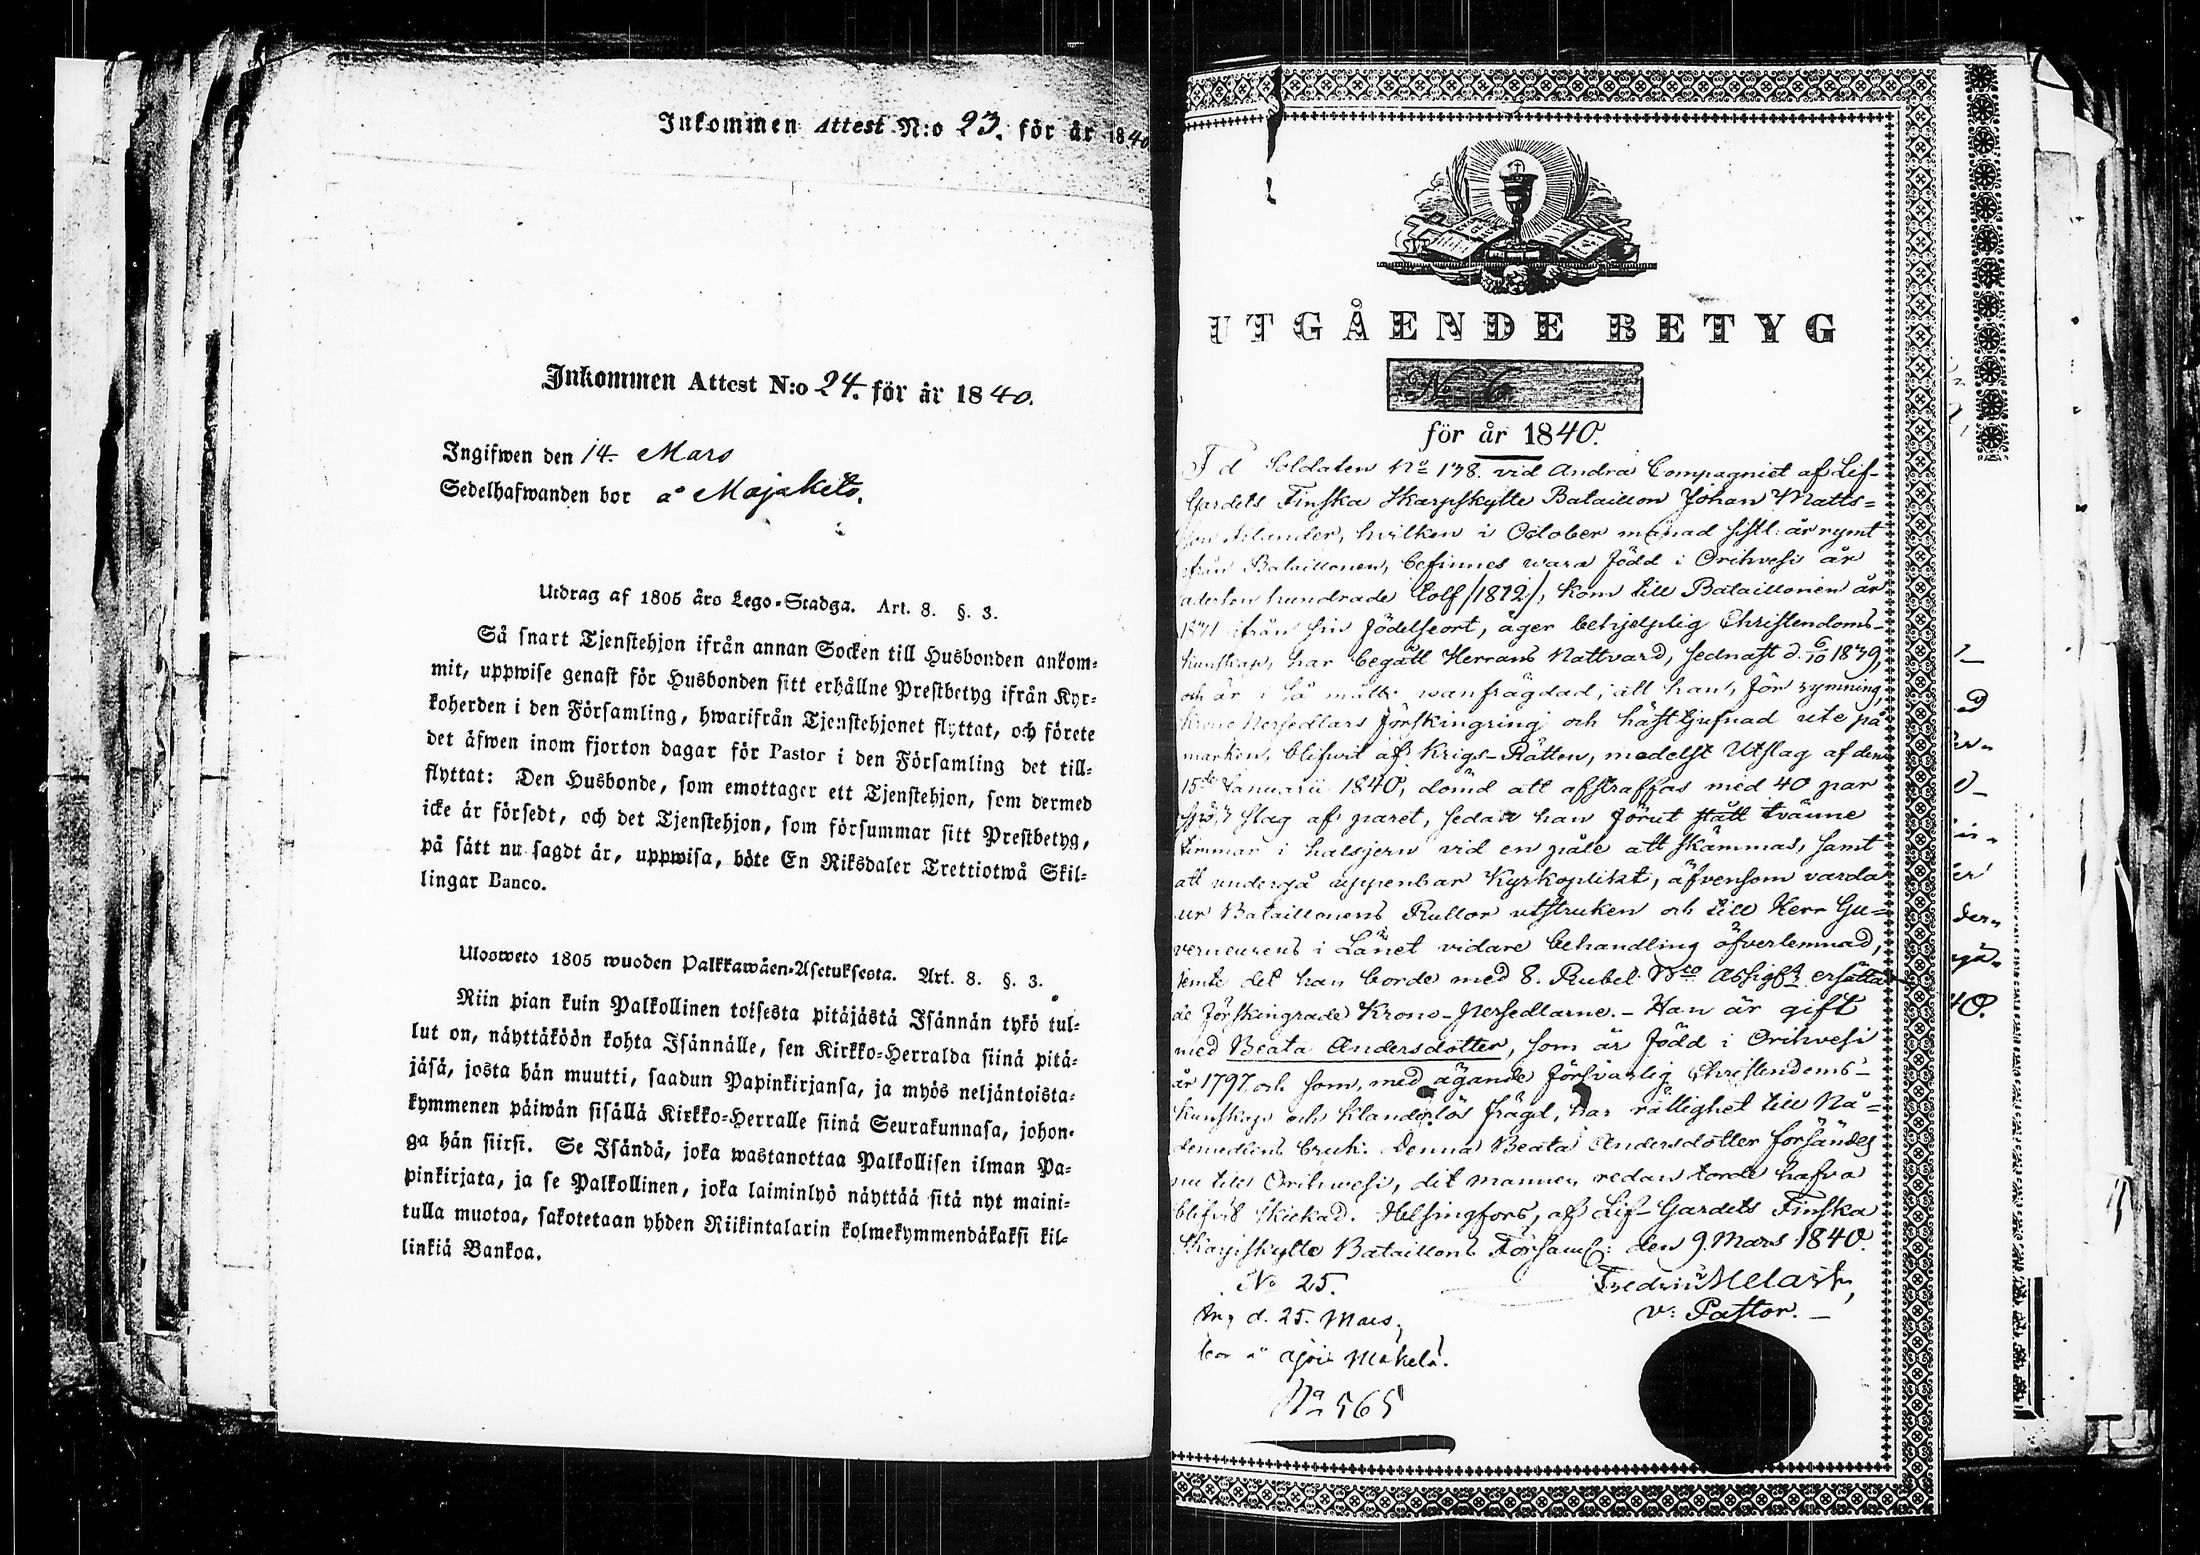 Inkommen Attest N:o 23. för år 1840
Inkommen Attest N:o 24. för år 1840.
Ingifwen den 14. Mars
Sedelhafwanden bor å Majaketo.
Utdrag af 1805 års Lego-Stadga. Art. 8. §. 3.
Så snart Tjenstehjon ifrån annan Socken till Husbonden ankom-
mit, uppwise genast för Husbonden sitt erhållne Prestbetyg ifrån Kyr-
koherden i den Församling, hwarifrån Tjenstehjonet flyttat, och förete
det äfwen inom fjorton dagar för Pastor i den Församling det till-
flyttat: Den Husbonde, som emottager ett Tjenstehjon, som dermed
icke är försedt, och det Tjenstehjon, som försummar sitt Prestbetyg,
på sätt nu sagdt är, uppwisa, böte En Riksdaler Trettiotwå Skil-
lingar Banco.
Ulosweto 1805 wuoden Palkkawäen-Asetuksesta. Art. 8. §. 3.
Niin pian kuin Palkollinen toisesta pitäjästä Isännän tykö tul-
lut on, näyttäköön kohta Isännälle, sen Kirkko-Herralda siinä pitä-
jäsä, josta hän muutti, saadun Papinkirjansa, ja myös neljäntoista-
kymmenen päiwän sisällä Kirkko-Herralle siinä Seurakunnasa, johon-
ga hän siirsi. Se Isändä, joka wastanottaa Palkollisen ilman Pa-
pinkirjata, ja se Palkollinen, joka laiminlyö näyttää sitä nyt maini-
tulla muotoa, sakotetaan yhden Riikintalarin kolmekymmendäkaksi kil-
linkiä Bankoa.
UTGÅENDE BETYG
No 6
för år 1840.
F d Soldaten No 138. vid Andra Compagniet af Lif-
Gardets Finska Skarpskytte Bataillon Johan Matts-
son, hvilken i October månad sistl: år rymt
ifrån Bataillonen, befinnes vara född i Orihvesi år
aderton hundrade tolf /1812/, kom till Bataillonen år
1831 ifrån sin födelseort, äger behjelplig Christendoms-
kunskap, har begått Herrans Nattvard, sednast d. 6/10 1839,
och är i så måtto wanfrägdad, att han, för rymning,
Krono Persedlars förskingring och häst tjufnad ute på
marken, blifvit af Krigs-Rätten, medelst Utslag af den
15de Januarii 1840, dömd att afstraffas med 40 par
spö, 3 slag af paret, sedan han förut stått tvänne
timmar i halsjern vid en påle att skämmas, samt
att undergå uppenbar Kyrkoplikt, äfvensom varda
ur Bataillonens Rullor utstruken och till Herr Gu-
verneurens i Länet vidare behandling öfverlemnad,
jemte det han borde med 8. Rubel Bco Assigtr ersätta
de förskingrade Krono-persedlarne. - Han är gift
med Beata Andersdotter, som är född i Orihvesi
år 1797. och som, med ägande försvarlig Christendoms-
kunskap och klanderlös frägd, har rättighet till Nå-
demedlens bruk. Denna Beata Andersdotter försändes
nu till Orihvesi, dit mannen redan torde hafva
blifvit skickad. Helsingfors, af Lif-Gardets Finska
Skarpskytte Bataillons Församl: den 9. Mars 1840.
Fredric
v: Pastor. -
No 25.
Ing d. 25. Mars,
bor å Mäkelä.
No 565